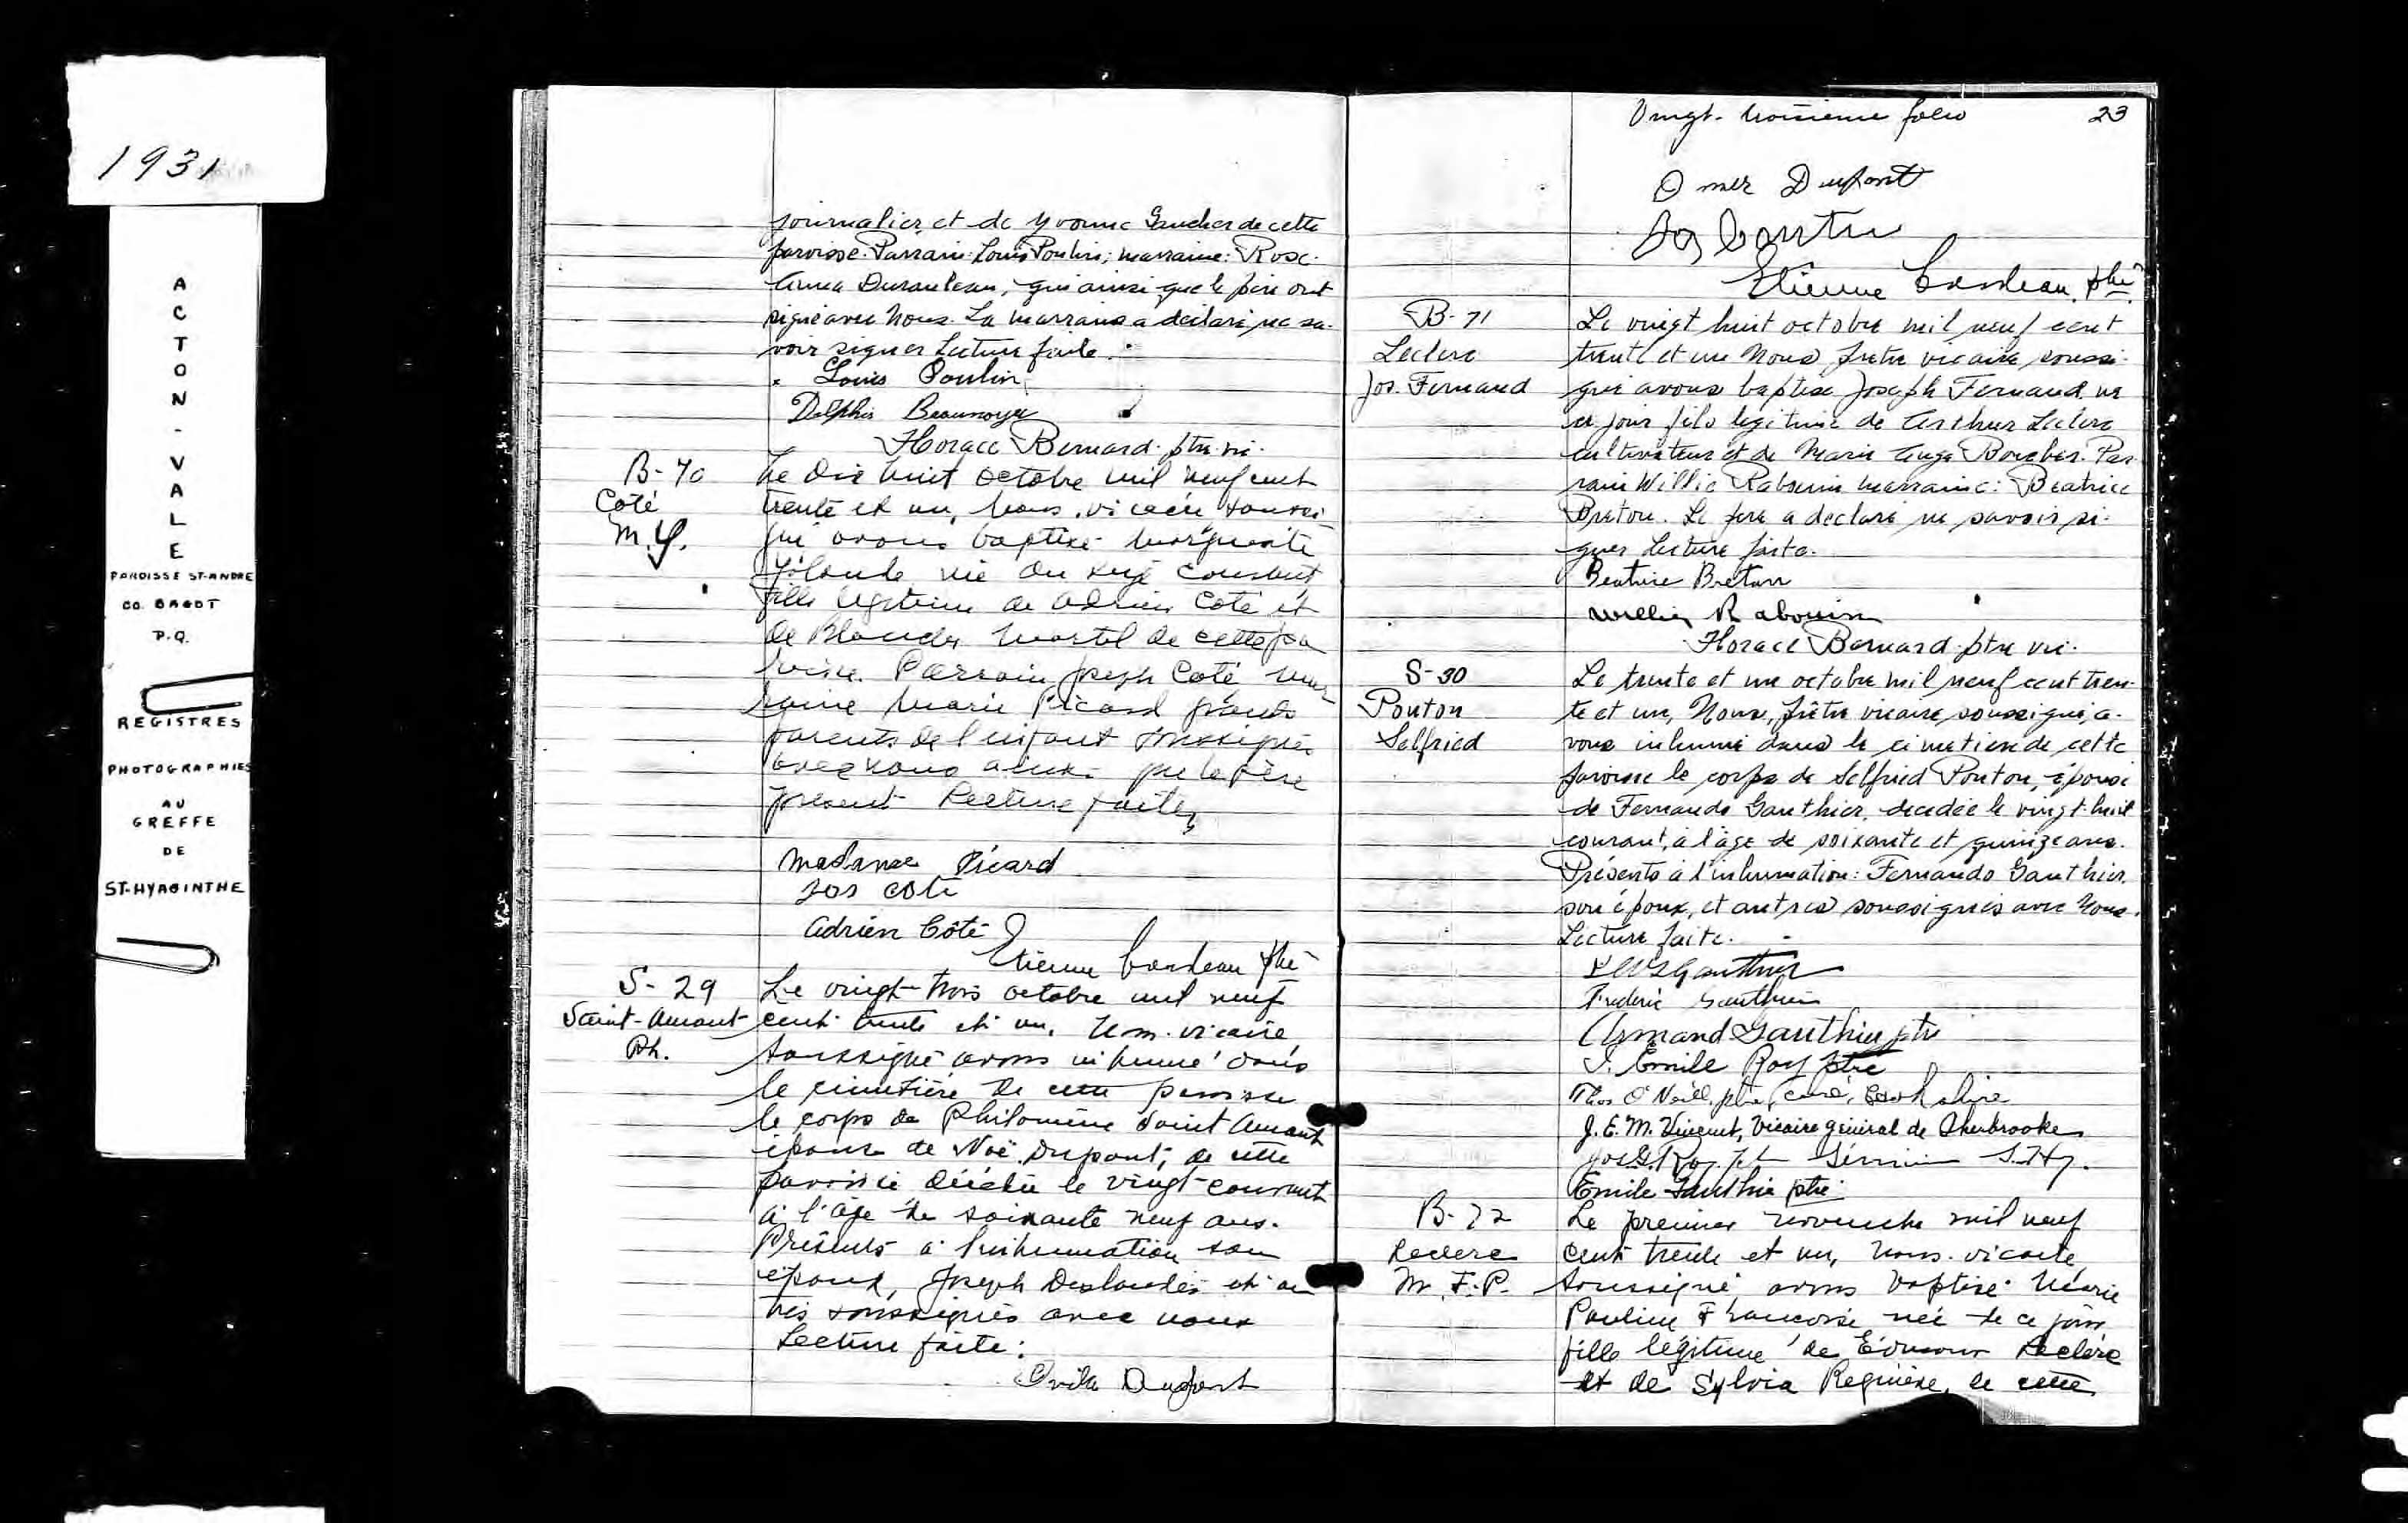 1931
ACTON-VALE
PAROISSE ST-ANDRE
CO. BAGOT
P.Q.
REGISTRES
PHOTOGRAPHIES
AU
GREFFE
DE
ST-HYACINTHE
journalier, et de Yvonne Gaucher de cette
paroisse. Parrain: Louis Poulin; marraine: Rose-
Anna Duranleau, qui ainsi que le père ont
signé avec Nous. La marraine a déclaré ne sa-
voir signer Lecture faite.
Louis Poulin
Delphis Beaunoyer
Horace Bernard ptre vic.
B-70
Coté
M.Y.
Le dix huit octobre mil neuf cent
trente et un, nous, vicaire soussi
gné avons baptisé Marguerite
Yolande née du seize courant
fille légitime de Adrien Coté et
de Blanche Martel de cette pa
roisse. Parrain Joseph Coté mar
raine Marie Picard grands
parents de l'enfant soussignés
avec nous ainsi que le père
présent Lecture faite,
Madame Picard
Jos Coté
Adrien Côté
Etienne Cordeau ptre
S-29
Saint-Amant
Ph.
Le vingt-trois octobre mil neuf
cent trente et un, Nous. vicaire
soussigné avons inhumé dans
le cimetière de cette paroisse
le corps de Philomène Saint Amant
épouse de Noé Dupont, de cette
paroisse décédée le vingt courant
à l'âge de soixante neuf ans.
Présents à l'inhumation son
époux, Joseph Deslandes et au
tres soussignés avec nous
Lecture faite:
Ovila Dupont
Vingt-troisieme folio 23
Omer Dupont
Etienne Cordeau ptre
B-71
Leclerc
Jos. Fernand
Le vingt huit octobre mil neuf cent
trente et un Nous prêtre vicaire soussi-
gné avons baptisé Joseph Fernand né
ce jour fils légitime de Arthur Leclerc
cultivateur et de Marie Ange Boucher. Par-
rain Willie Rabouin marraine: Beatrice
Breton. Le père a déclaré ne savoir si-
gner Lecture faite.
Beatrice Breton
Willie Rabouin
Horace Bernard ptre vic.
S-30
Ponton
Selfried
Le trente et un octobre mil neuf cent tren-
te et un, Nous, prêtre vicaire, soussigné, a-
vons inhumé dans le cimetiere de cette
paroisse le corps de Selfried Ponton, épouse
de Fernando Gauthier, décédée le vingt-huit
courant, à l'âge de soixante et quinze ans.
Présents à l'inhumation: Fernando Gauthier,
son époux, et autres soussignés avec Nous.
Lecture faite.
Gauthier
Frederic Gauthier
Armand Gauthier ptre
J. Emile Roy ptre
Thos O'Neill, ptre, curé, Cookshire
J. E. M. Vincent, Vicaire général de Sherbrooke
Emile Gauthier ptre
B-72
Leclerc
M. F. P.
Le premier novembre mil neuf
cent trente et un, nous. vicaire
soussigné, avons baptisé Marie
Pauline Francoise née de ce jour
fille légitime de Edmour Leclerc
et de Sylvia Reginère, de cette